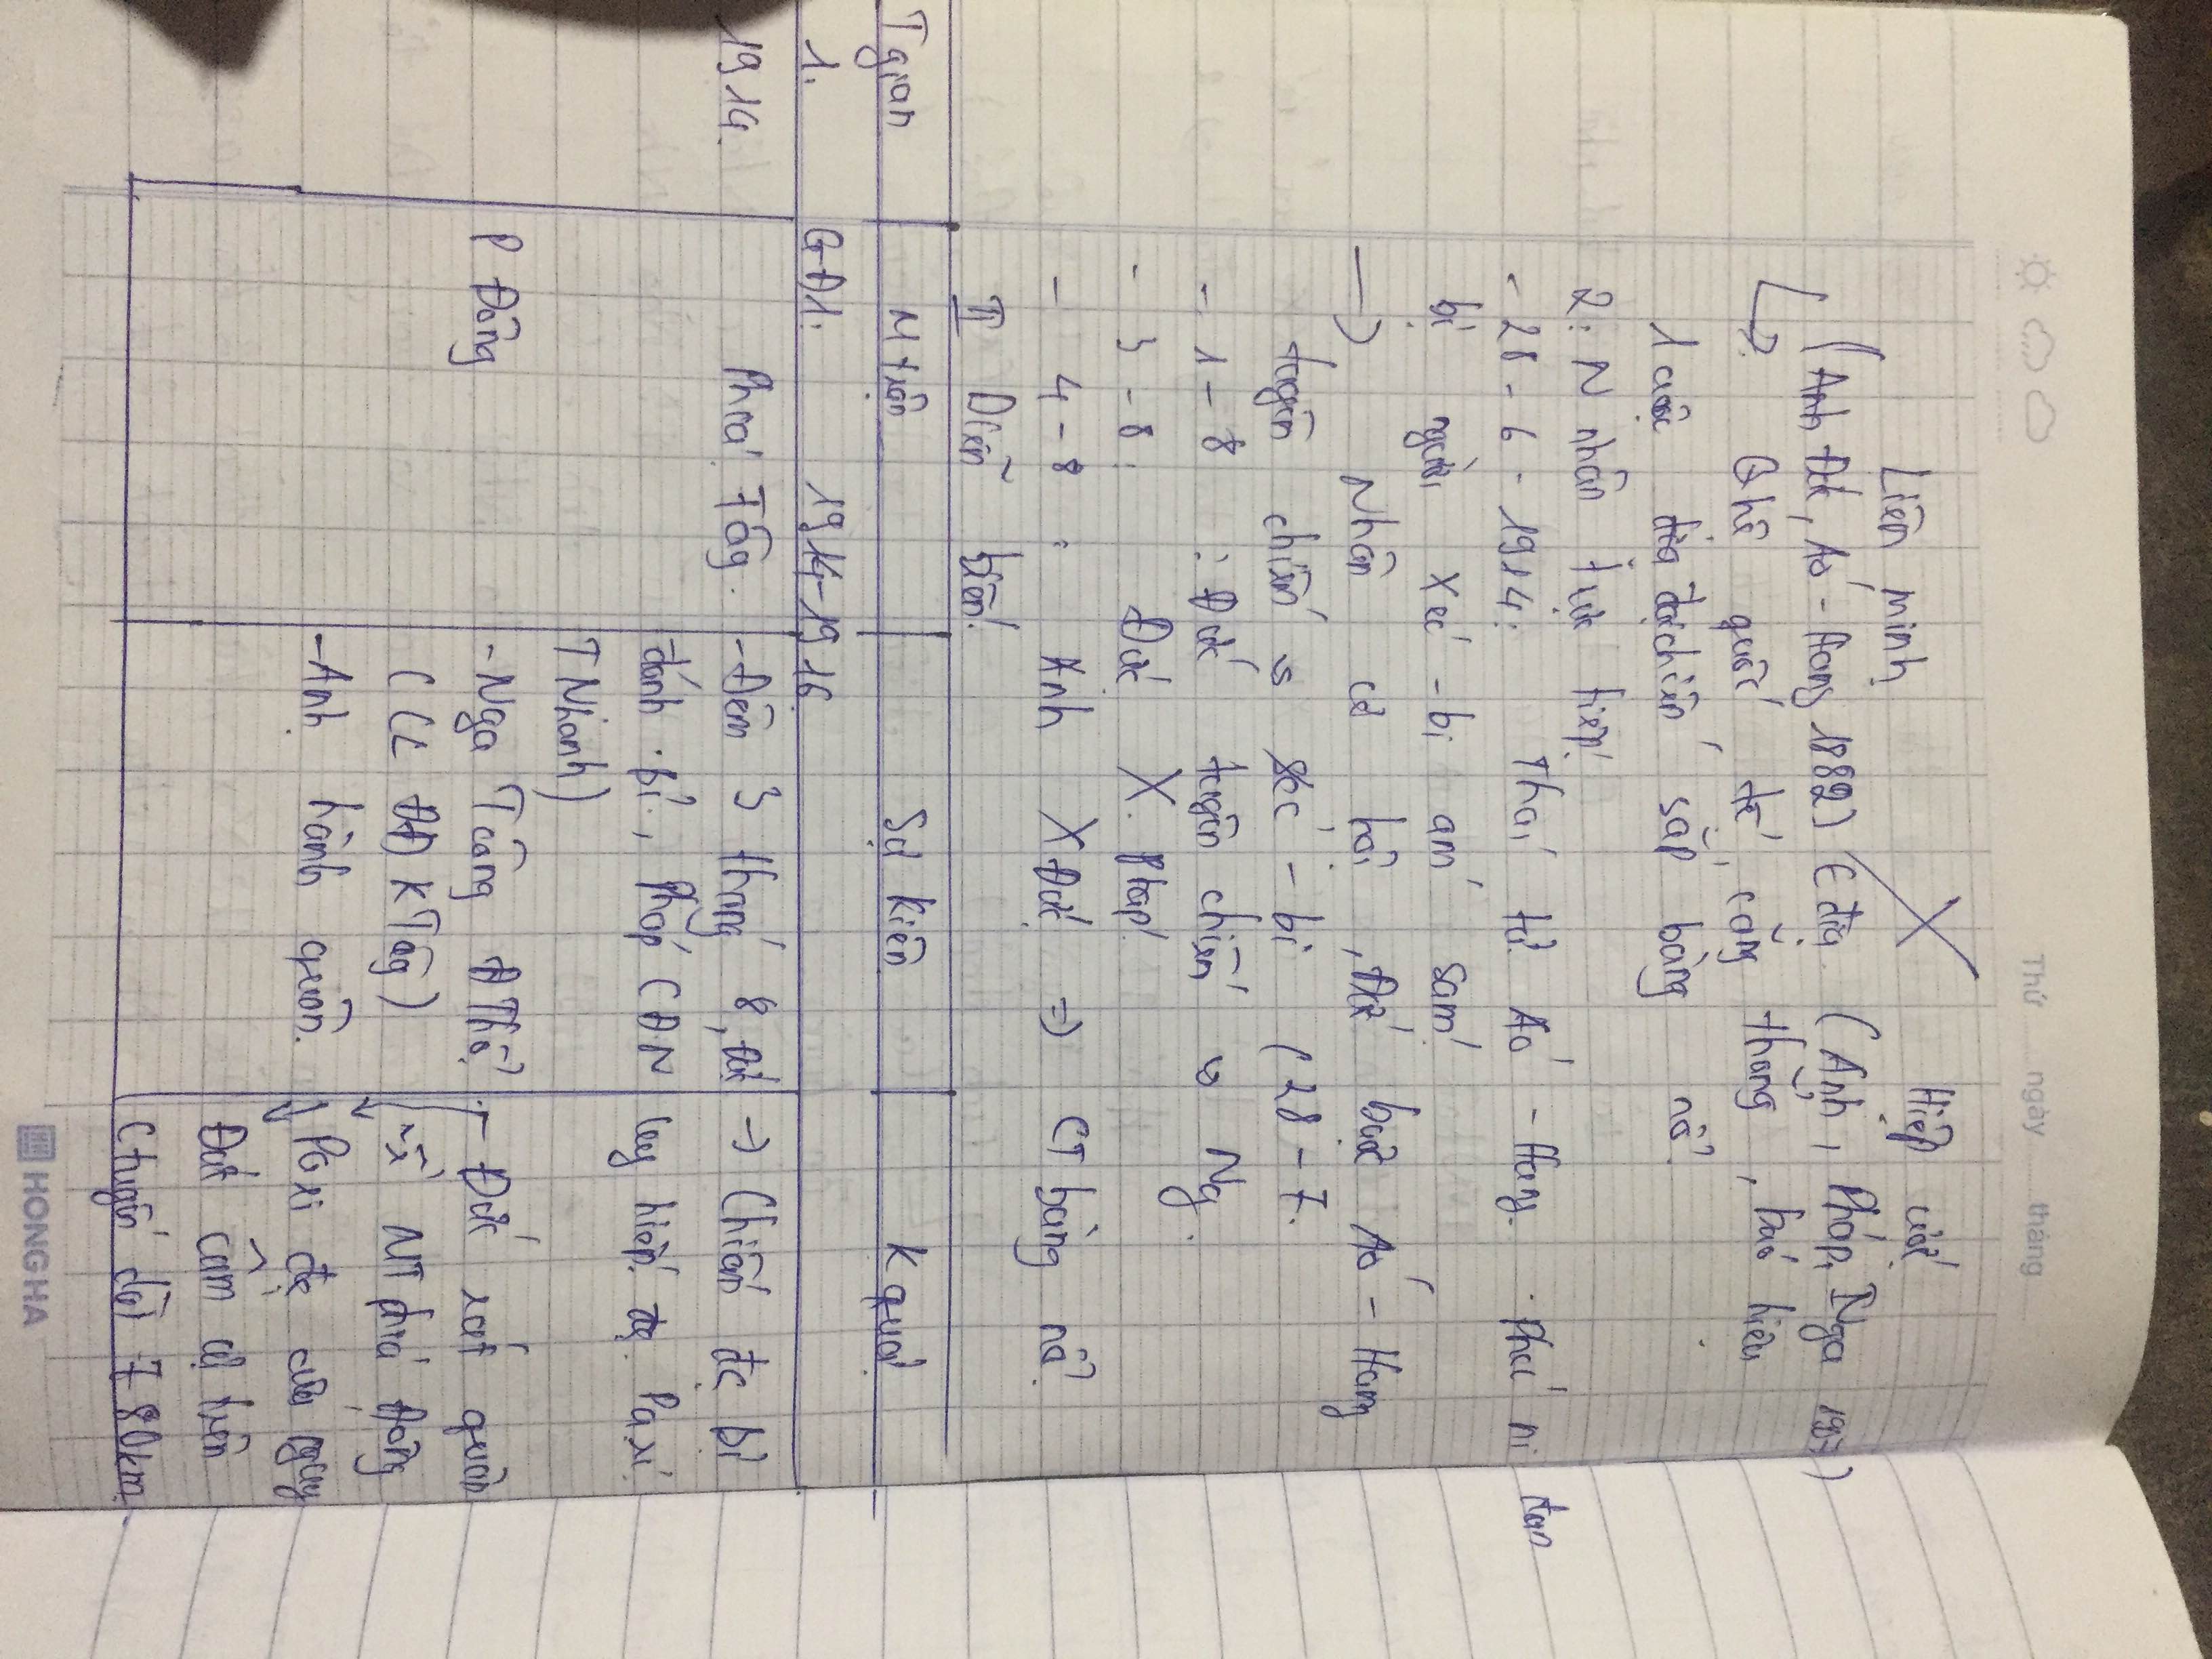 Thứ ngày tháng
Liên minh X Hiệp ước
(Anh Đức, Áo - Hung 1882) (Anh, Pháp, Nga 1907)
Qhệ quốc tế căng thẳng, báo hiệu
1 cuộc đại chiến sắp bùng nổ.
2: N nhân trực tiếp
- 28 - 6 - 1914: Thái tử Áo - Hung. Phéc ni tan
bị người Xéc - bi ám sám
→ Nhân cơ hội, Đức buộc Áo - Hung
tuyên chiến vs Séc - bi (28 - 7.
- 1 - 8 : Đức tuyên chiến vs Ng.
- 3 - 8 : Đức X. Pháp
- 4 - 8 : Anh X Đức ⇒ CT bùng nổ.
II Diễn biến
T gian M trận Sự kiện K quả
1. GĐ1. 1914-1916
1914. Phía Tây. -Đêm 3 tháng 8, Đức → Chiếm đc bỉ
đánh bỉ, Pháp (ĐN uy hiếp đc Paxi
TNhanh)
P Đông -Nga Tcông ĐPhổ - Đức rút quân
(CL ĐĐ KTây) NT phía Đông
-Anh hành quân. Paxi đc cứu nguy
Đức cầm cự trên
Chuyến dài 780km
HONG HA